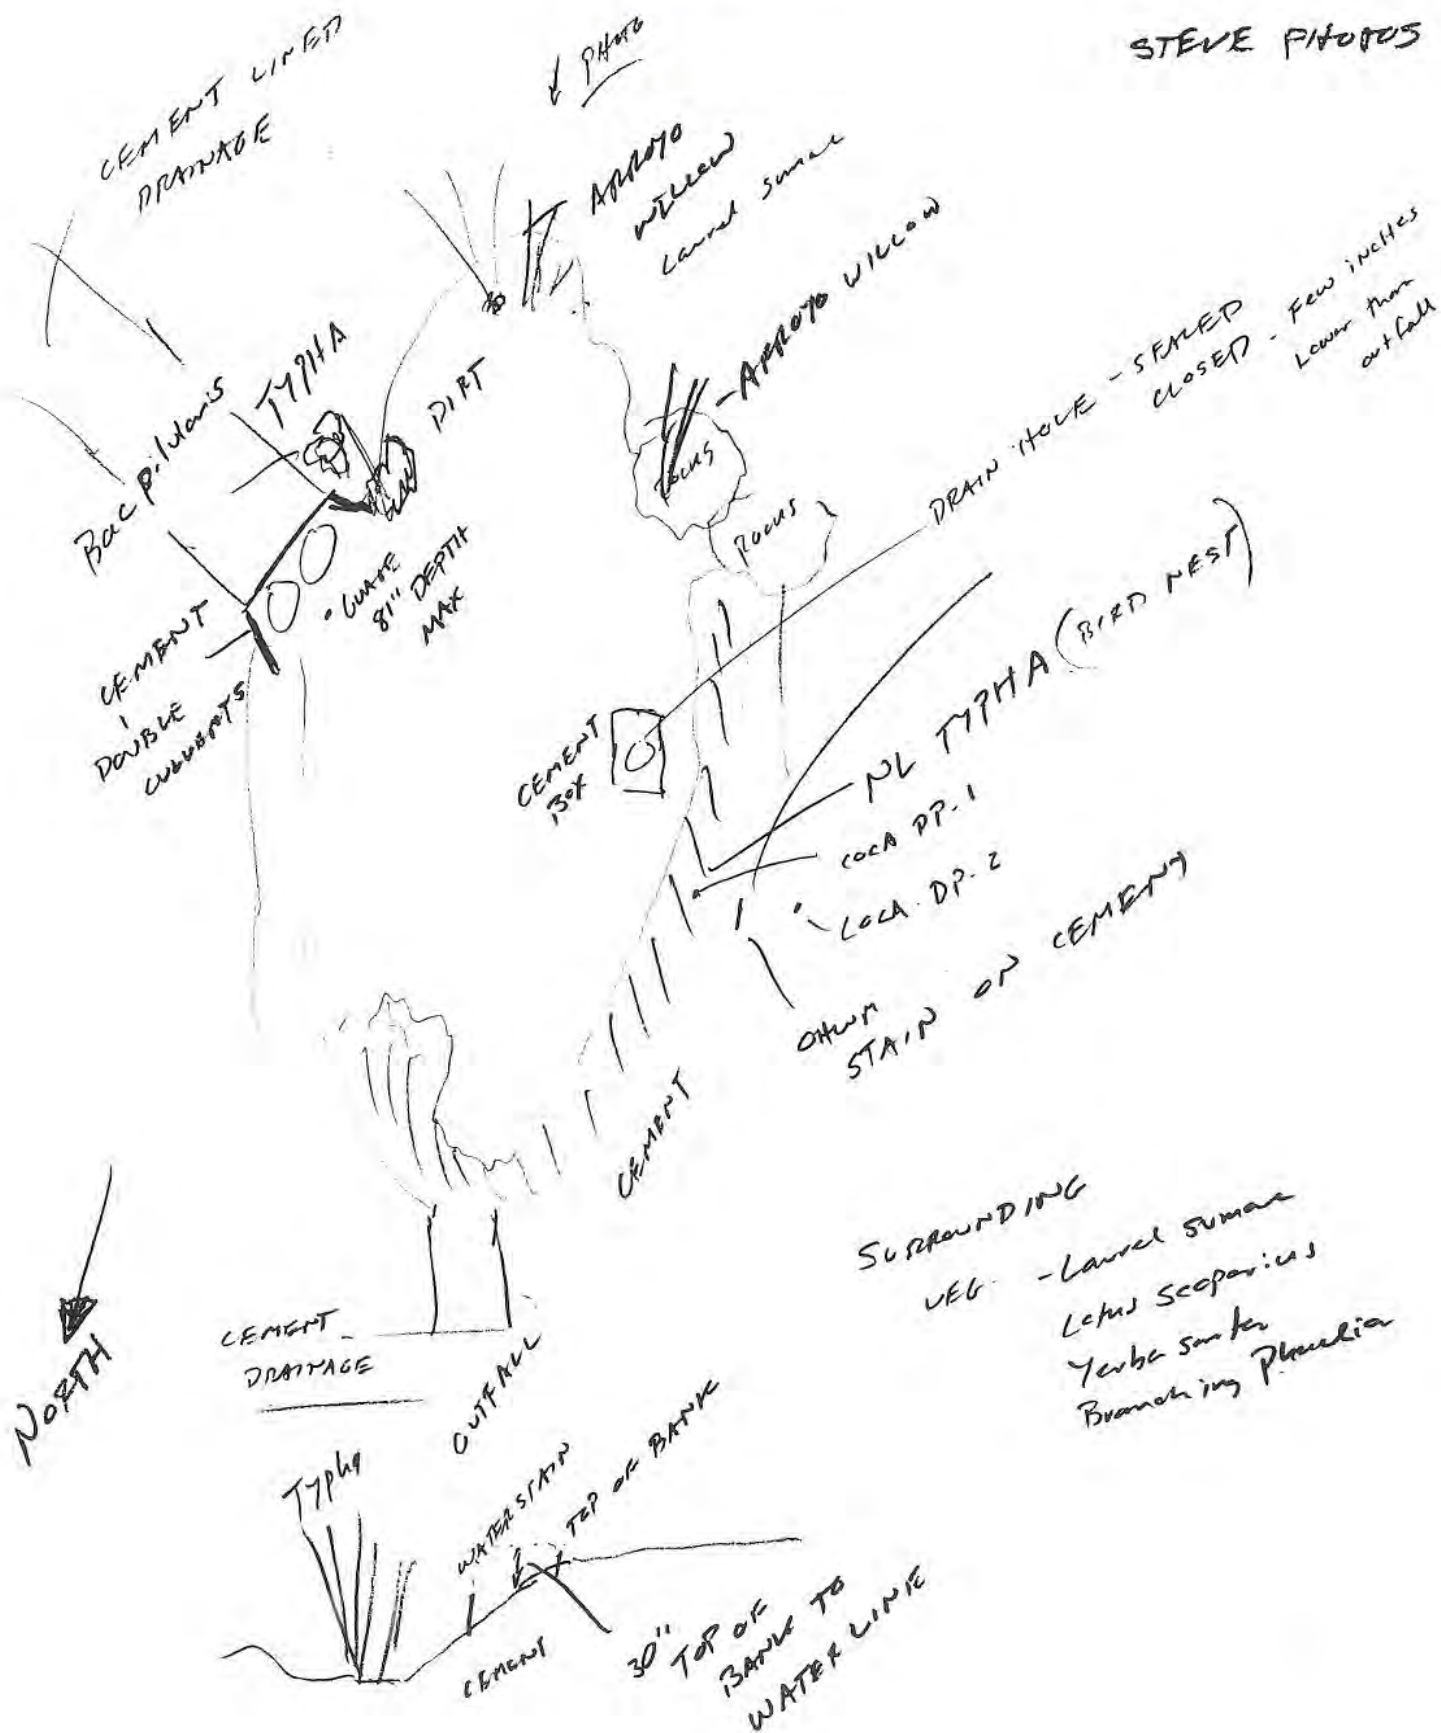 STEVE PHOTOS
CEMENT LINED
DRAINAGE
PHOTO
ARROYO
WILLOW
Laurel sumac
-ARROYO WILLOW
TYPHA
DIRT
Bac pilularis
ROCKS
ROCKS
DRAIN HOLE - SEALED
CLOSED - FEW INCHES
Lower than
outfall
81" DEPTH
MAX
CEMENT
DOUBLE
CULVERTS
CEMENT
BOX
NL TYPHA (BIRD NEST)
LOCA DP. 1
LOCA. DP. 2
OHWM
STAIN ON CEMENT
CEMENT
SURROUNDING
VEG. -Laurel sumac
Lotus scoparius
Yerba santa
Branching Phacelia
NORTH
CEMENT
DRAINAGE
OUTFALL
Typha
WATER STAIN
TOP OF BANK
CEMENT
30"
TOP OF
BANK TO
WATER LINE